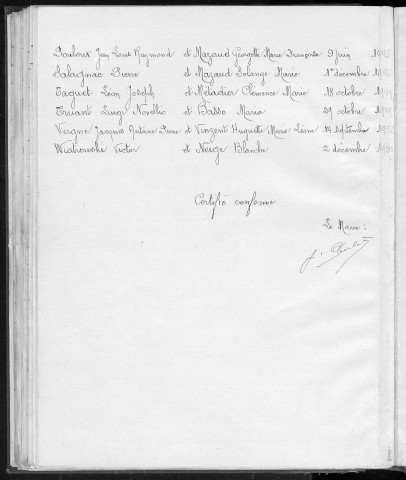 Jean Louis Raymond et Mazaud Georgette Marie Françoise 9 juin
Salagnac Pierre et Mazaud Solange Marie 1er décembre
Taquet Léon Joseph et Métadier Clémence Marie 18 octobre
Truant Luigi Novellio et Basso Maria 29 octobre
Vergne Jacques Antoine Pierre et Vinzent Huguette Marie Léone 14 septembre
Victor et Neige Blanche 2 décembre
Certifié conforme
Le Maire :